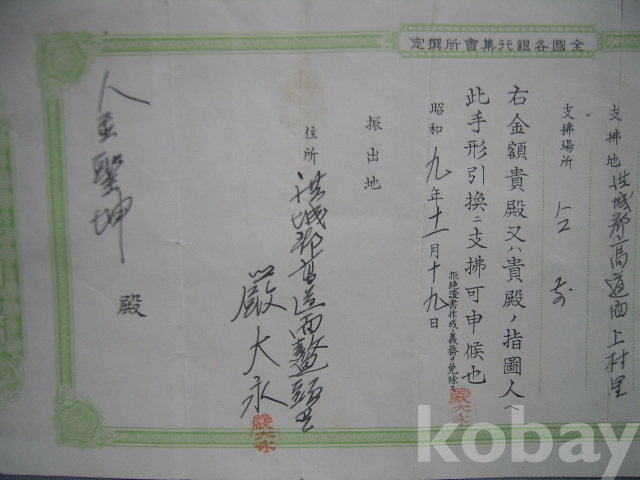 全國各銀行集會所撰定
支拂地 洪城郡高道面上村里
支拂場所 仝前
右金額貴殿又ハ貴殿ノ指圖人ヘ
此手形引換ニ支拂可申候也
拒絶證書作成ノ義務ヲ免除ス
嚴大永
昭和九年十一月十九日
振出地
住所 洪城郡高道面鰲頭里
嚴大永
嚴大永
金聖坤 殿
kobay